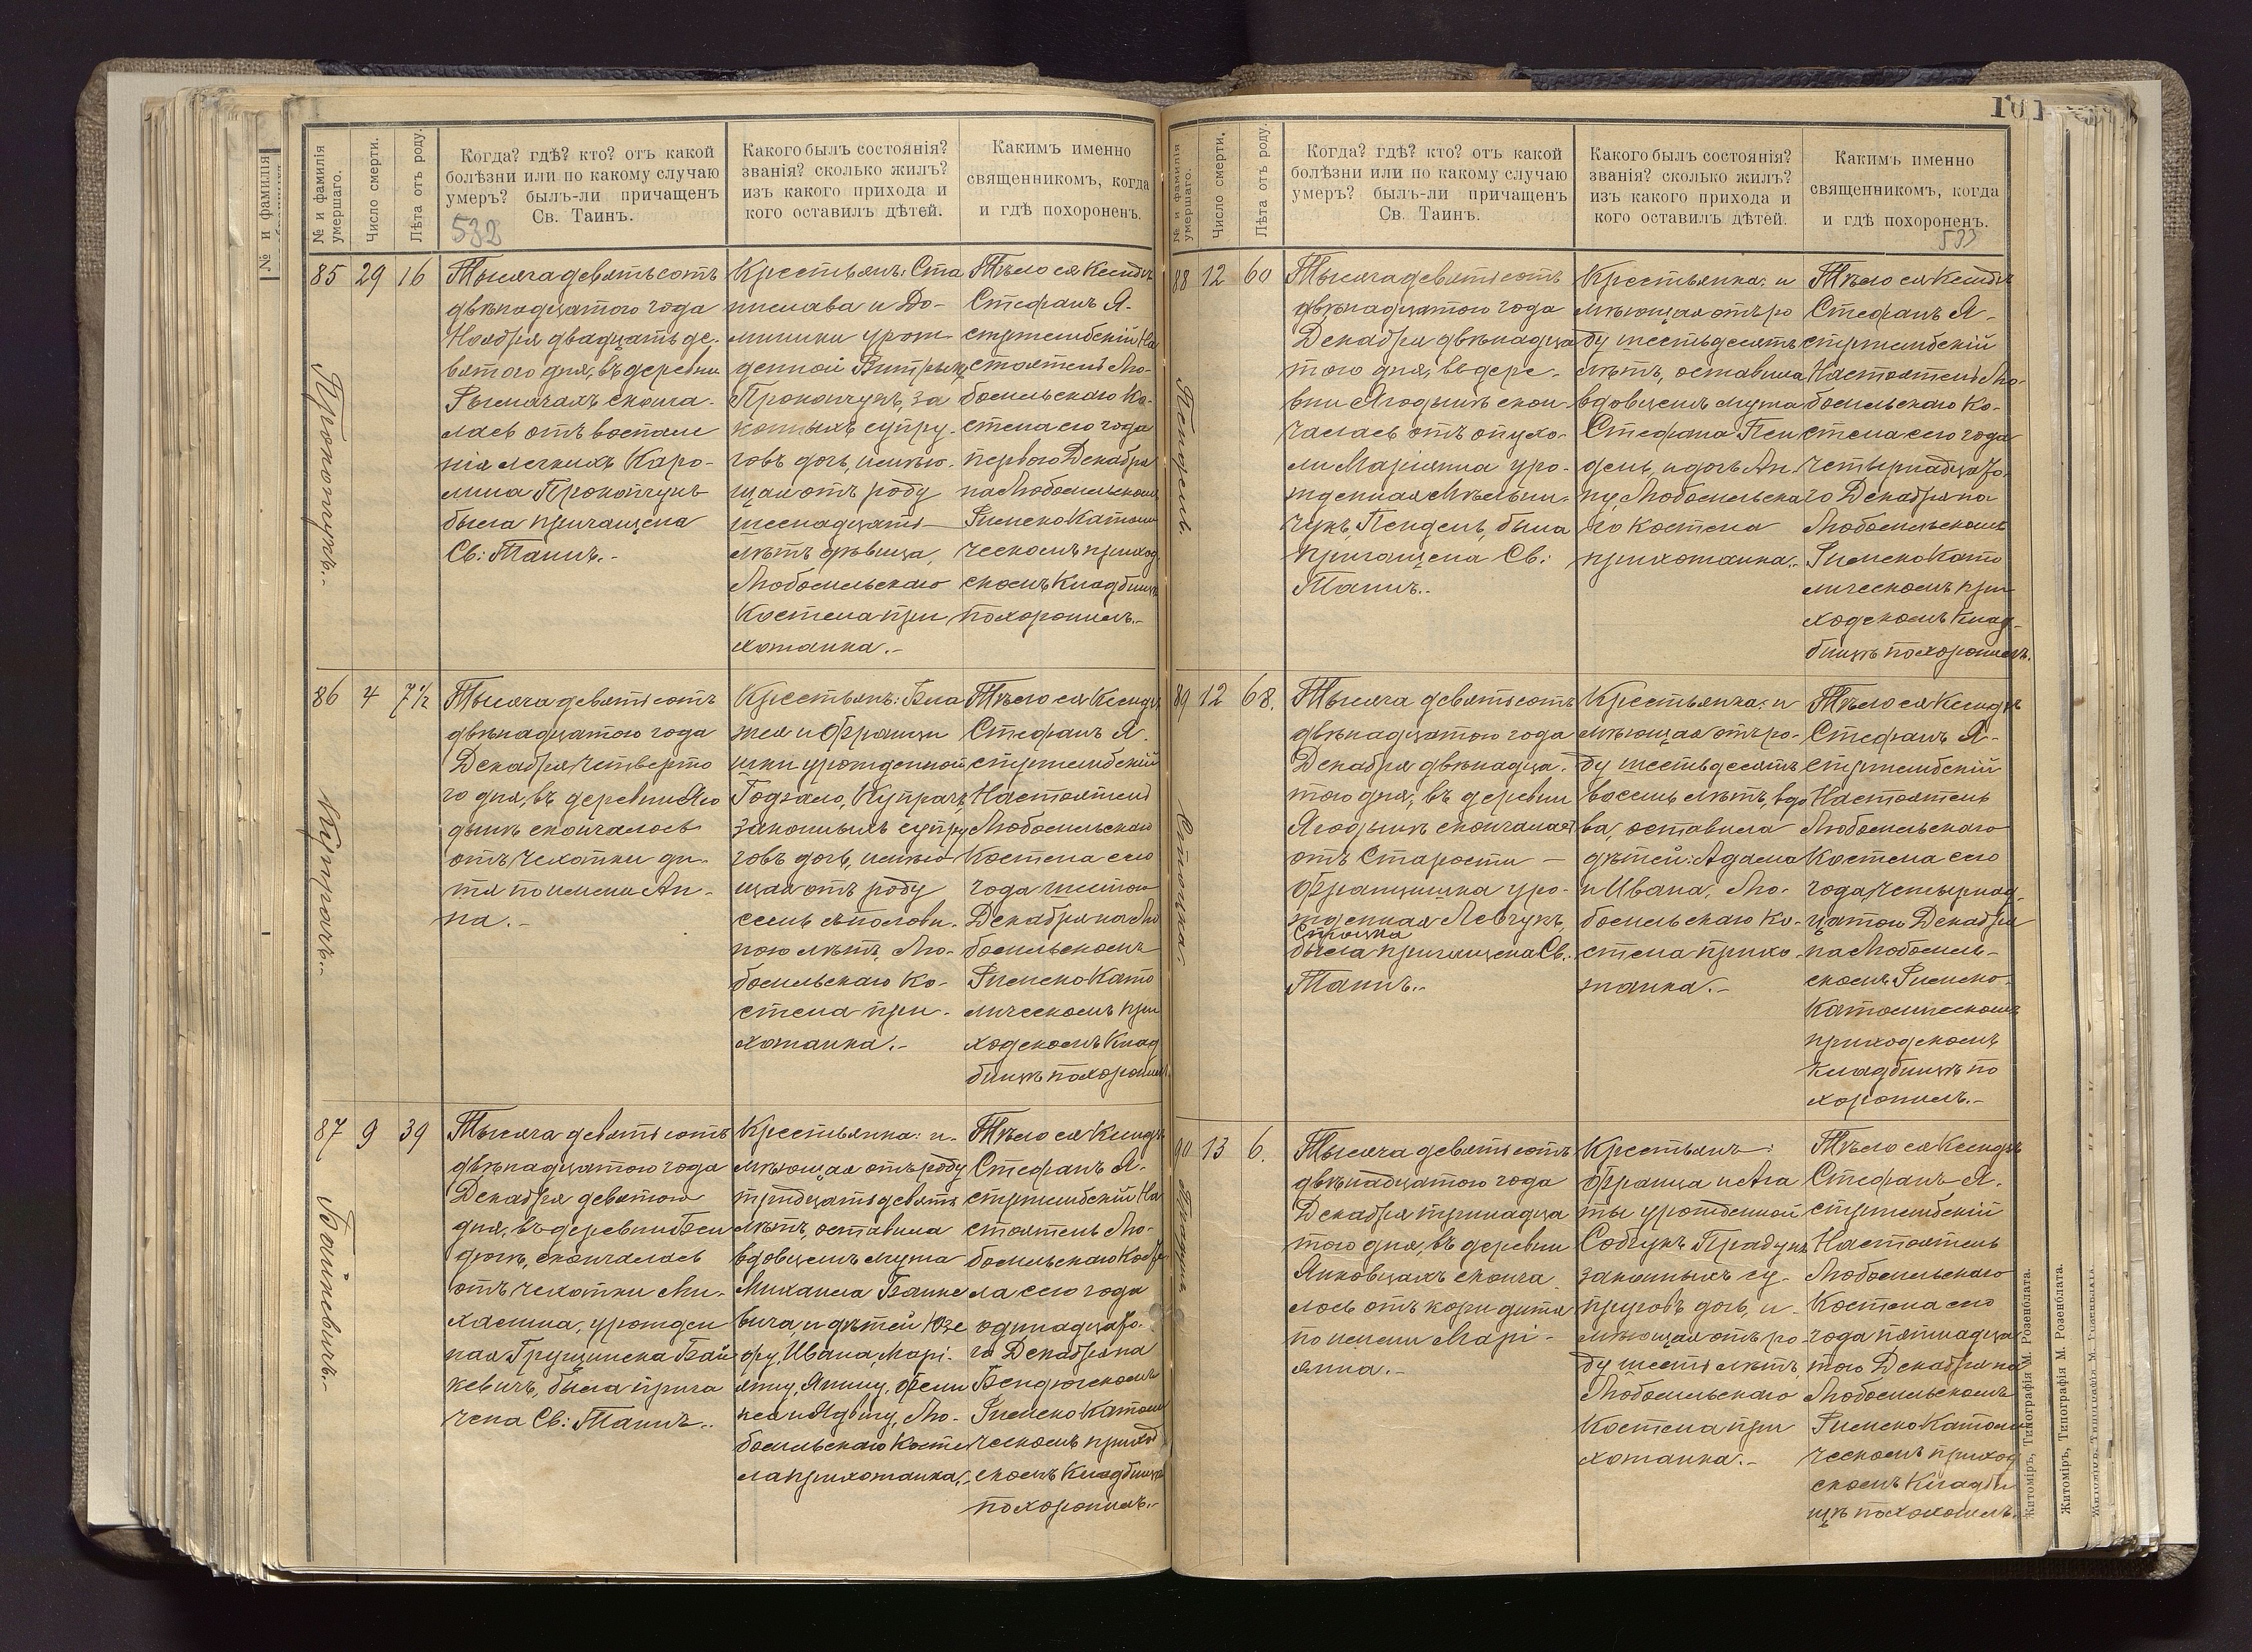 № и фамилія умершаго.
Число смерти.
Лѣта отъ роду.
Когда? гдѣ? кто? отъ какой
болѣзни или по какому случаю
умеръ? былъ-ли причащенъ
Св. Таинъ.
532
Какого былъ состоянія?
званія? сколько жилъ?
изъ какого прихода и
кого оставилъ дѣтей.
Какимъ именно
священникомъ, когда
и гдѣ похороненъ.
85
29
16
Прокопчукъ.-
Тысяча девятьсотъ
двѣнадцатого года
Ноября двадцать де-
вятого дня, въ деревни
Рымачахъ сконча-
лась отъ воспале
нія легкихъ Каро-
лина Прокопчукъ
была причащена
Св: Таинъ.-
Крестьянъ: Ста
нислава и До-
миники урож-
денной
Прокопчукъ, за
конныхъ супру-
говъ дочь, имѣю-
щая отъ роду
шеснадцать
лѣтъ дѣвица,
Любомльскаго
Костела при
хожанка.-
Тѣло ея Ксендзъ
Стефанъ Я-
стржембскій На
стоятель Лю-
бомльскаго Ко-
стела сего года
перваго Декабря
на Любомльскомъ
Римско Катол
ческомъ приход
скомъ Кладбищѣ
похоронилъ.-
86
4
7½
Купрачъ.-
Тысяча девятьсотъ
двѣнадцатого года
Декабря четверто
го дня, въ деревни Яго
дынѣ скончалось
отъ чехотки ди-
тя по имени Ан-
на.-
Крестьянъ: Бла
жея и Францы
шки урожденной
Купрачъ
законныхъ супру
говъ дочь, имѣю
щая отъ роду
семь съ полови-
ною лѣтъ, Лю-
бомльскаго Ко-
стела при-
хожанка.-
Тѣло ея Ксендзъ
Стефанъ Я-
стржембскій
Настоятель
Любомльскаго
Костела сего
года шестого
Декабря на Лю
бомльскомъ
Римско Като
лическомъ при
ходскомъ Клад
бищѣ похоронилъ
87
9
39
Байкевичъ.-
Тысяча девятьсотъ
двѣнадцатого года
Декабря девятого
дня, въ деревни Бен
дюгѣ, скончалась
отъ чехотки Ми-
халина, урожден
ная Грущинска Бай
кевичъ, была прича
чена Св: Таинъ.-
Крестьянка: и-
мѣющая отъ роду
тридцать девять
лѣтъ, оставила
вдовцемъ мужа
Михаила Байке
вича, и дѣтей Юзе
фу, Ивана, Марі-
янну, Янину, Фели
кса и Ядвигу, Лю-
бомльскаго Косте
ла прихожанка.-
Тѣло ея Ксендзъ
Стефанъ Я-
стржембскій На
стоятель Лю-
бомльскаго Косте
ла сего года
одинадцато-
го Декабря на
Бендюгскомъ
Римско Катол
ческомъ приход
скомъ Кладбищѣ
похоронилъ.-
101
№ и фамилія умершаго.
Число смерти.
Лѣта отъ роду.
Когда? гдѣ? кто? отъ какой
болѣзни или по какому случаю
умеръ? былъ-ли причащенъ
Св. Таинъ.
Какого былъ состоянія?
званія? сколько жилъ?
изъ какого прихода и
кого оставилъ дѣтей.
Какимъ именно
священникомъ, когда
и гдѣ похороненъ.
533
88
12
60
Пендель.
Тысяча девятьсотъ
двѣнадцатого года
Декабря двѣнадца
того дня, въ дере-
вни Ягодынѣ скон-
чалась отъ опухо-
ли Маріянна уро-
жденная Мѣльни-
чукъ, Пендель, была
причащена Св:
Таинъ.-
Крестьянка: и
мѣющая отъ ро
ду шестьдесятъ
лѣтъ, оставила
вдовцемъ мужа
Стефана Пен
дель, и дочь Ан-
ну, Любомльска
го Костела
прихожанка.-
Тѣло ея Ксендзъ
Стефанъ Я-
стржембскій
Настоятель Лю-
бомльскаго Ко-
стела сего года
четырнадцато-
го Декабря на
Любомльскомъ
Римско Като
лическомъ при
ходскомъ Клад-
бищѣ похоронилъ.
89
12
68.
Тысяча девятьсотъ
двѣнадцатого года
Декабря двѣнадца-
того дня, въ деревни
Ягодынѣ скончалась
отъ Старости —
Францишка уро-
жденная Левчукъ,
была причащена Св.:
Таинъ.-
Крестьянка: и
мѣющая отъ ро-
ду шестьдесятъ
восемь лѣтъ, вдо
ва, оставила
дѣтей: Адама
и Ивана, Лю-
бомльскаго Ко-
стела прихо-
жанка.-
Тѣло ея Ксендзъ
Стефанъ Я-
стржембскій
Настоятель
Любомльскаго
Костела сего
года, четырнад-
цатого Декабря
на Любомль-
скомъ Римско-
Католическомъ
приходскомъ
кладбищѣ по
хоронилъ.-
90
13
6.
Тысяча девятьсотъ
двѣнадцатого года
Декабря тринадца
того дня, въ деревни
Янковцахъ сконча
лось отъ кори дитя
по имени Марі-
янна.-
Крестьянъ:
Франца и Ага
ты урожденной
законныхъ су-
пруговъ дочь, и-
мѣющая отъ ро-
ду шесть лѣтъ,
Любомльскаго
Костела при
хожанка.-
Тѣло ея Ксендзъ
Стефанъ Я-
стржембскій
Настоятель
Любомльскаго
Костела сего
года пятнадца
того Декабря на
Любомльскомъ
Римско Католи
ческомъ приход
скомъ Кладби
щѣ похоронилъ.
Житоміръ, Типографія М. Розенблата.
Житоміръ, Типографія М. Розенблата.